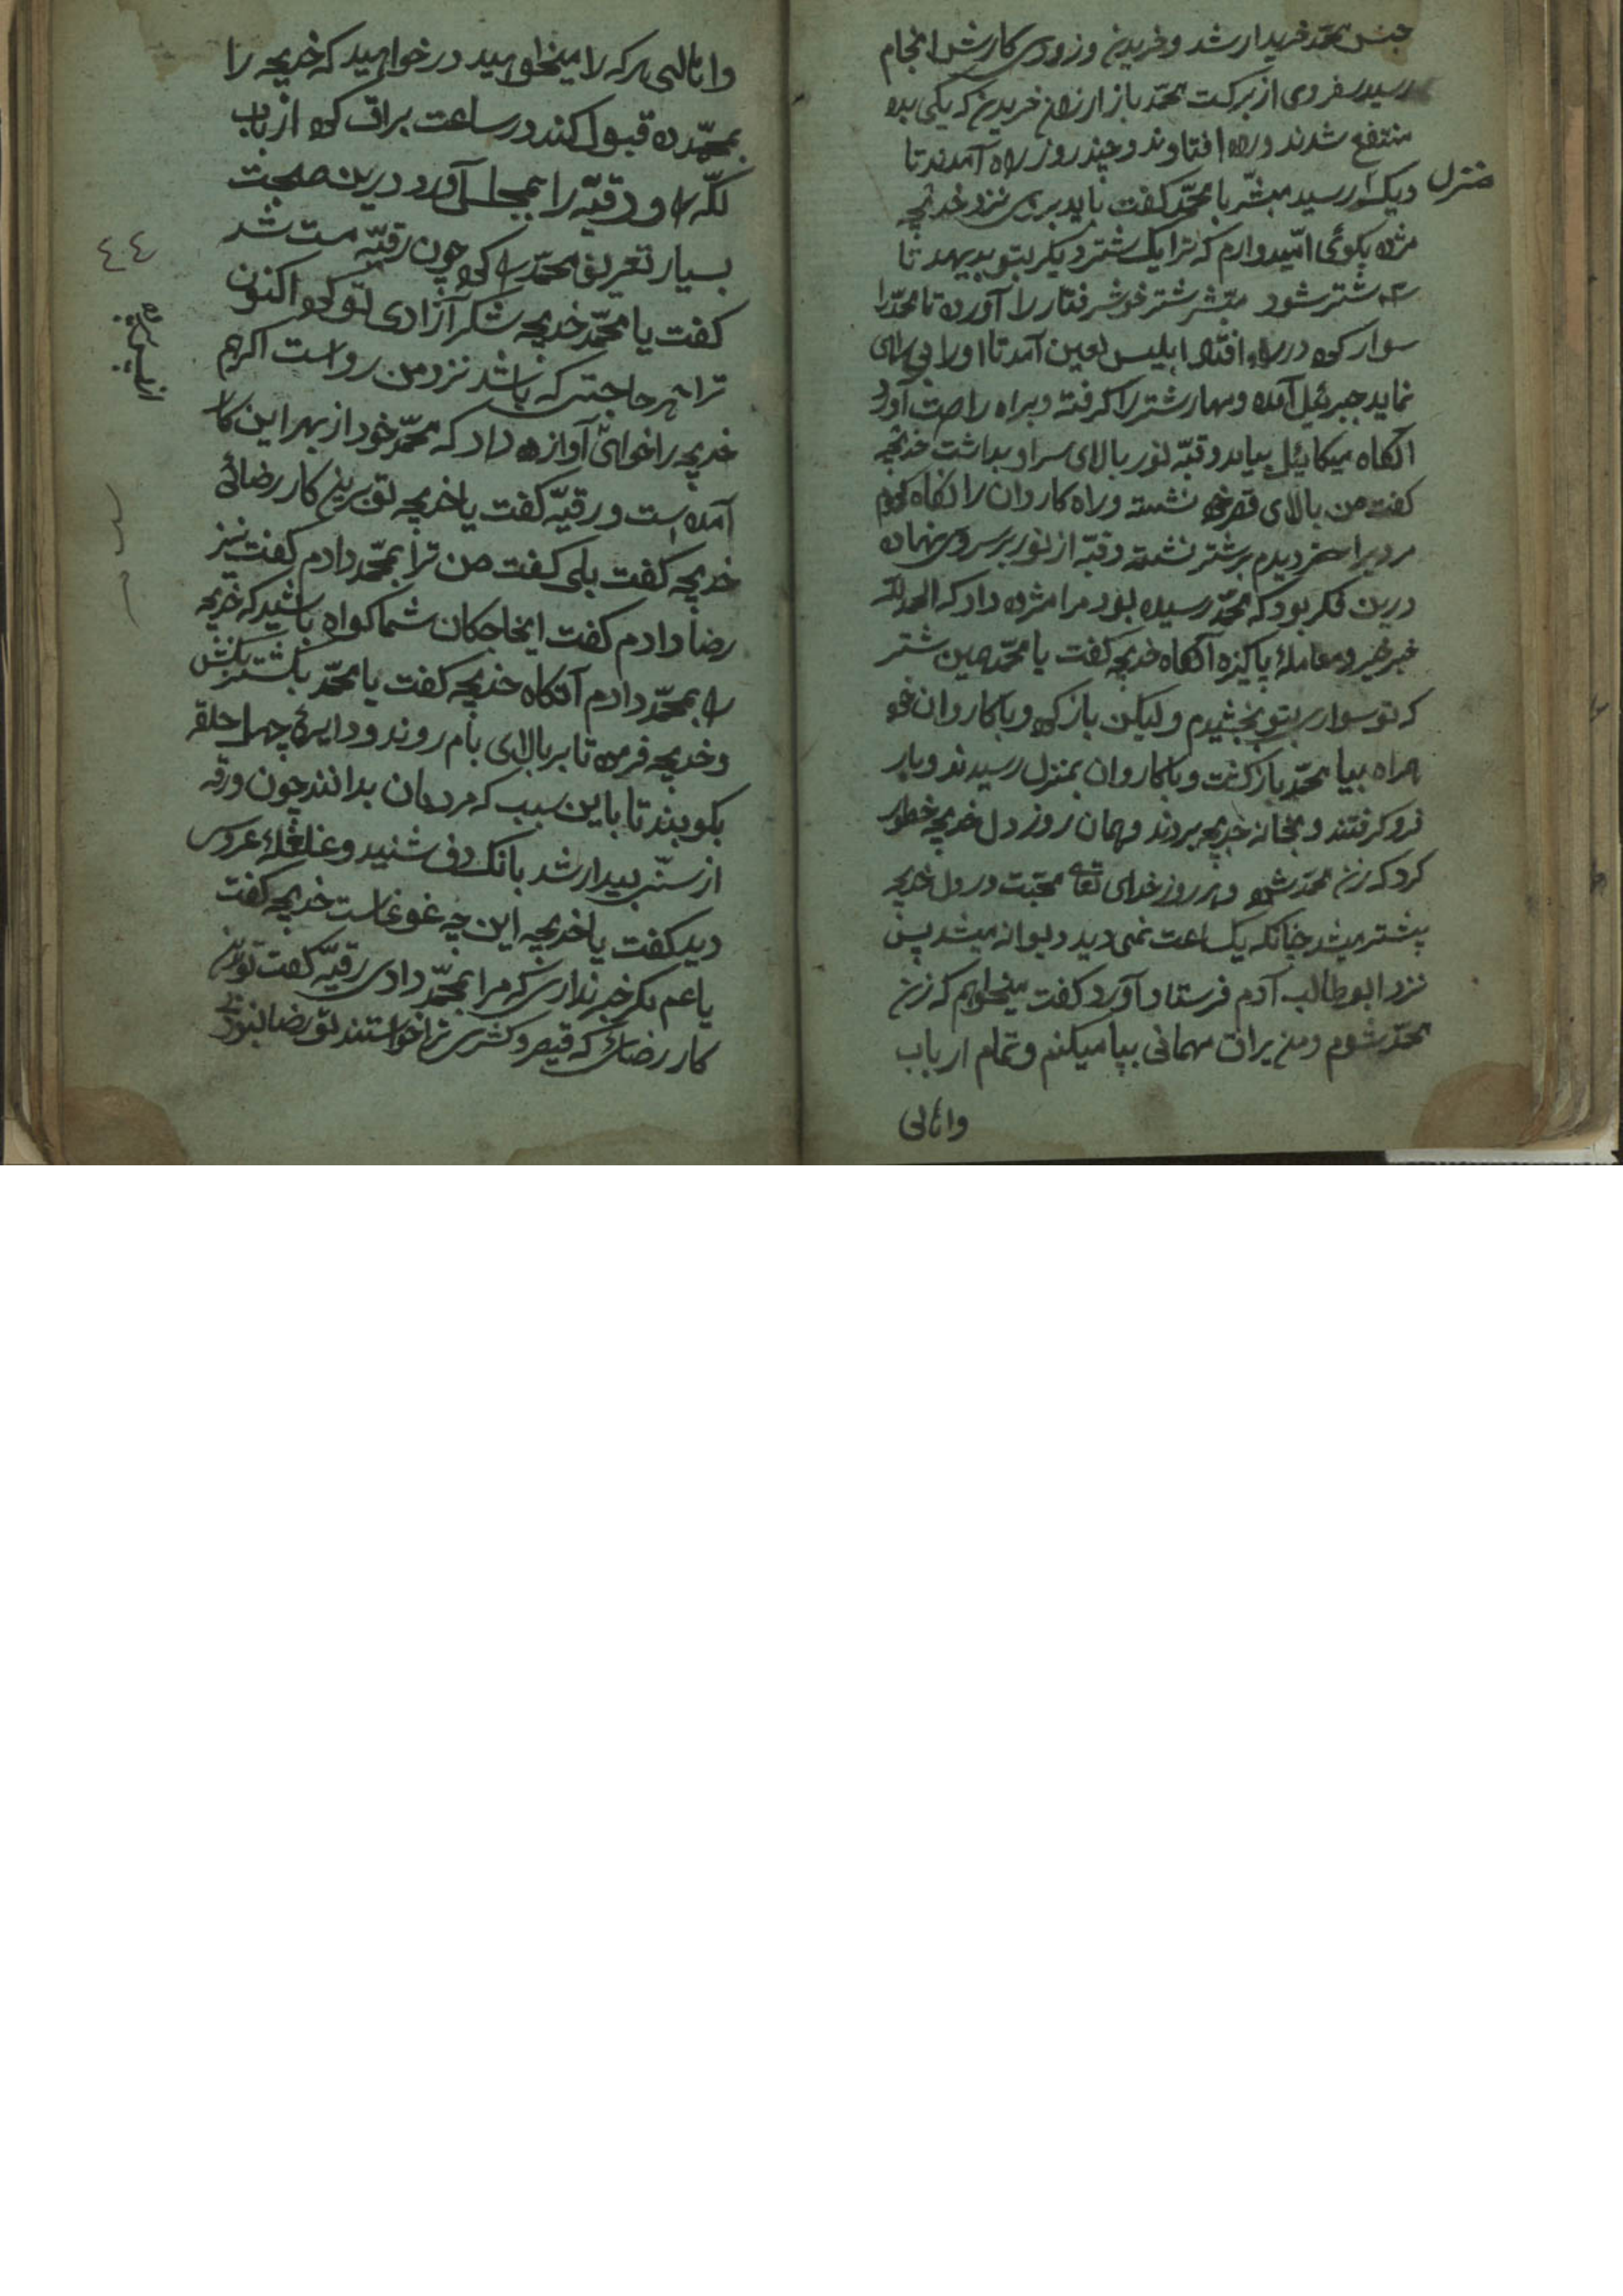 جنس محمّد خریدار شد و خریدند و زودی کارش انجام
رسید سفردی از برکت محمّد باز ارزان خریدند که یکی بده
منتفع شدند و راه افتادند و چند روز راه آمدند تا
منزل دیکر رسید مبشّر با محمّد کفت باید بروی نزد خدیجه
مژده بکوئی امّیدوارم که ترا یک شتر دیکر بتو بدیهد تا
سه شتر شود مبشّر شتر خوش رفتار را آورده تا محمّد را
سوار کرده در راه افتاد ابلیس لعین آمد تا او را بی راهی
نماید جبرئیل آمده و مهار شتر را کرفته و براه راست آورد
آنکاه میکائیل بیامد و قبّه نور بالای سر او بداشت خدیجه
کفت من بالای قصر خود نشسته و راه کاروان را نکاه کردم
مردیرا دیدم بر شتر نشسته و قبّه از نور بر سر وی نهاده
درین فکر بود که محمّد رسیده بود مرا مژده داد که الحمد لله
خبر خیر و معاملهٔ پاکیزه آنکاه خدیجه کفت یا محمّد همین شتر
که تو سواری بتو بخشیدم ولیکن باز کرد و با کاروان خود
همراه بیا محمّد باز کشت و با کاروان بمنزل رسیدند و بار
فرو کرفتند و بخانه خدیجه بردند و همان روز دل خدیجه خطور
کرد که زن محمّد شود و هر روز خدای تعالی محبّت در دل خدیجه
بیشتر میشد چنانکه یک ساعت نمی دید دیوانه میشد پس
نزد ابوطالب آدم فرستاد آورد کفت میخواهم که زن
محمّد شوم و من یراق مهمانی بپا میکنم و تمام ارباب
واهالی
واهالی هر که را میخواهید درخواهید که خدیجه را
بمحمّد ده قبول کند در ساعت یراق کرده از باب
مکّه را و رقیّه را بمجلس آورد درین صحبت
بسیار تعریف محمّد را کرد چون رقیّه مست شد
کفت یا محمّد خدیجه شکر آزادی تو کرد اکنون
ترا هر حاجتی که باشد نزد من رواست اکر هم
خدیجه را خواهی آوازه داد که محمّد خود از بهر این کار
آمده است ورقیّه کفت یا خدیجه تو برین کار رضائی
خدیجه کفت بلی کفت من ترا بمحمّد دادم کفت نیز
رضا دادم کفت ایخاجکان شما کواه باشید که خدیجه
را بمحمّد دادم آنکاه خدیجه کفت یا محمّد بکشتر بکش
و خدیجه فرمود تا بر بالای بام روند و دایرهٔ چهل حلقه
بکوبند تا باین سبب که مردمان بدانند چون ورقه
از مستی بیدار شد بانک دف شنید و غلغلهٔ عروس
دید کفت یا خدیجه این چه غوغاست خدیجه کفت
یا عم مکر خبر نداری که مرا بمحمّد دادی رقیّه کفت تو باین
کار رضائی که قیصر و کسری ترا خواستند تو رضا نبودی
٤٤